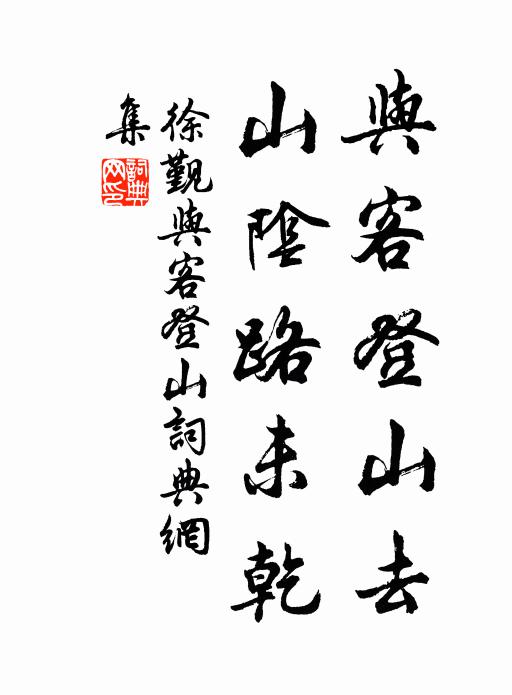 與客登山去
山陰路未乾
徐觀與客登山詞典網
集
詞典
网印